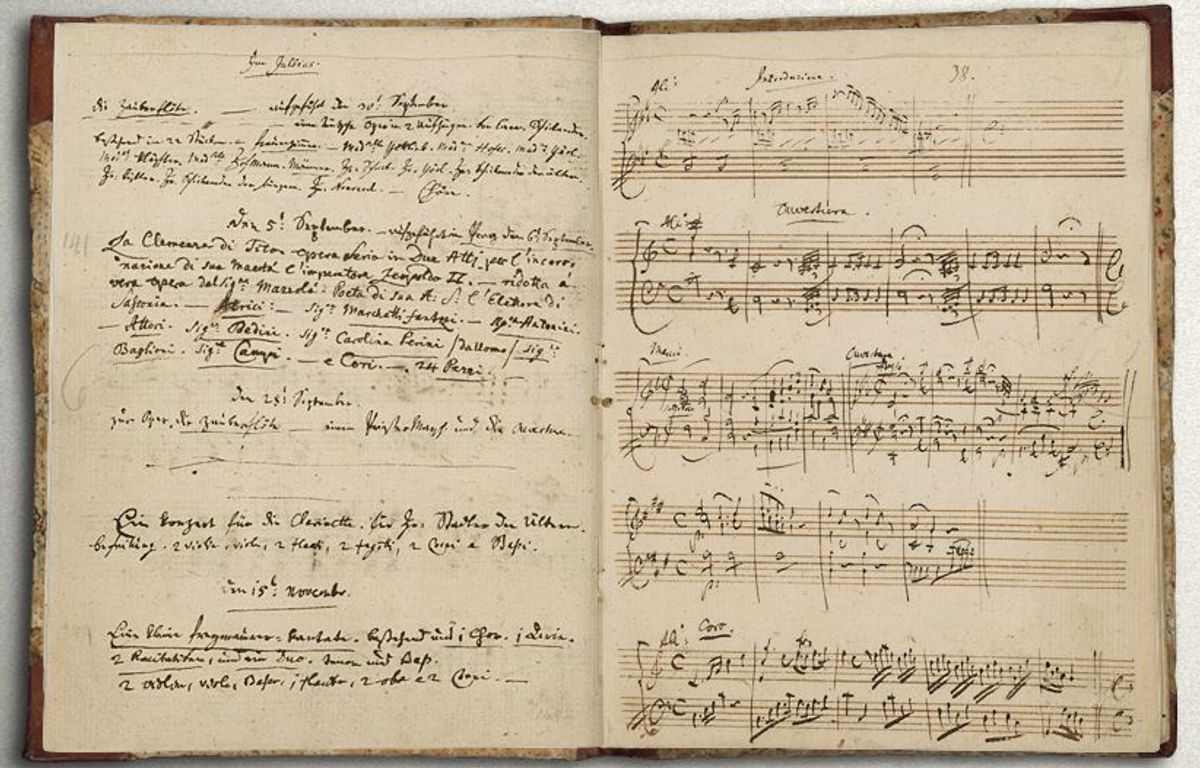 Im Jullius.
die Zauberflöte. — aufgeführt den 30t September.
eine teutsche Oper in 2 Aufzügen. von
bestehend in 22 Stücken. — Frauenzimmer. — Mad:selle Gottlieb. Mad:me Hofer. Mad:me Görl.
Mad:me Klöpfler. Mad:selle Hofmann. Männer. Hr: Schack. Hr: Görl. Hr: Schikaneder der ältere.
Hr: Kistler. Hr: Schikaneder der jüngere. Hr: Nouseul. — Chöre.
Den 5t September. — aufgeführt in Prag den 6t September.
La Clemenza di Tito. opera Seria in Due Atti. per l'incoro=
nazione di sua Maestà l'imperatore Leopoldo II. — ridotta à
vera opera dal Sigre Mazzolà. Poeta di sua A: S: l'Elettore di
Sassonia. — Attrici: — Sigra Marchetti fantozi. — Sigra Antonini.
— Attori. Sigre Bedini. Sigra Carolina Perini / da uomo / Sigre
Baglioni. Sigre Campi. — e Cori. — 24 Pezzi.
Den 28t September.
zur Oper. die Zauberflöte — einen Priestermarsch und die Ouverture.
Ein Konzert für die Clarinette. für Hr: Stadler den Ältern.
begleitung. 2 violini, viola, 2 flauti, 2 fagotti, 2 Corni e Baßi.
Den 15t Novembr.
Eine kleine freymaurer=kantate. bestehend aus 1 Chor. 1 Arie.
2 Recitativen, und ein Duo. tenor und Baß.
2 violini, viola, Basso, 1 flauto, 2 oboe e 2 Corni. —
38.
All: Introduzione.
Ouvertura.
All:
Marcia
Ouverture
Adagio
All: Coro.